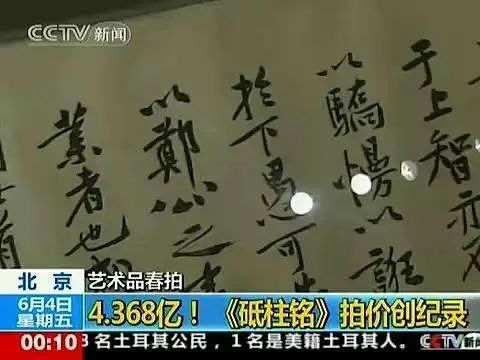 CCTV 新闻
于上智亦
以驕慢以誑
於下愚可
以鄭公之
業者也
北京
6月4日
星期五
艺术品春拍
4.368亿！《砥柱铭》拍价创纪录
00:10
名土耳其公民，1 名是美籍土耳其人。